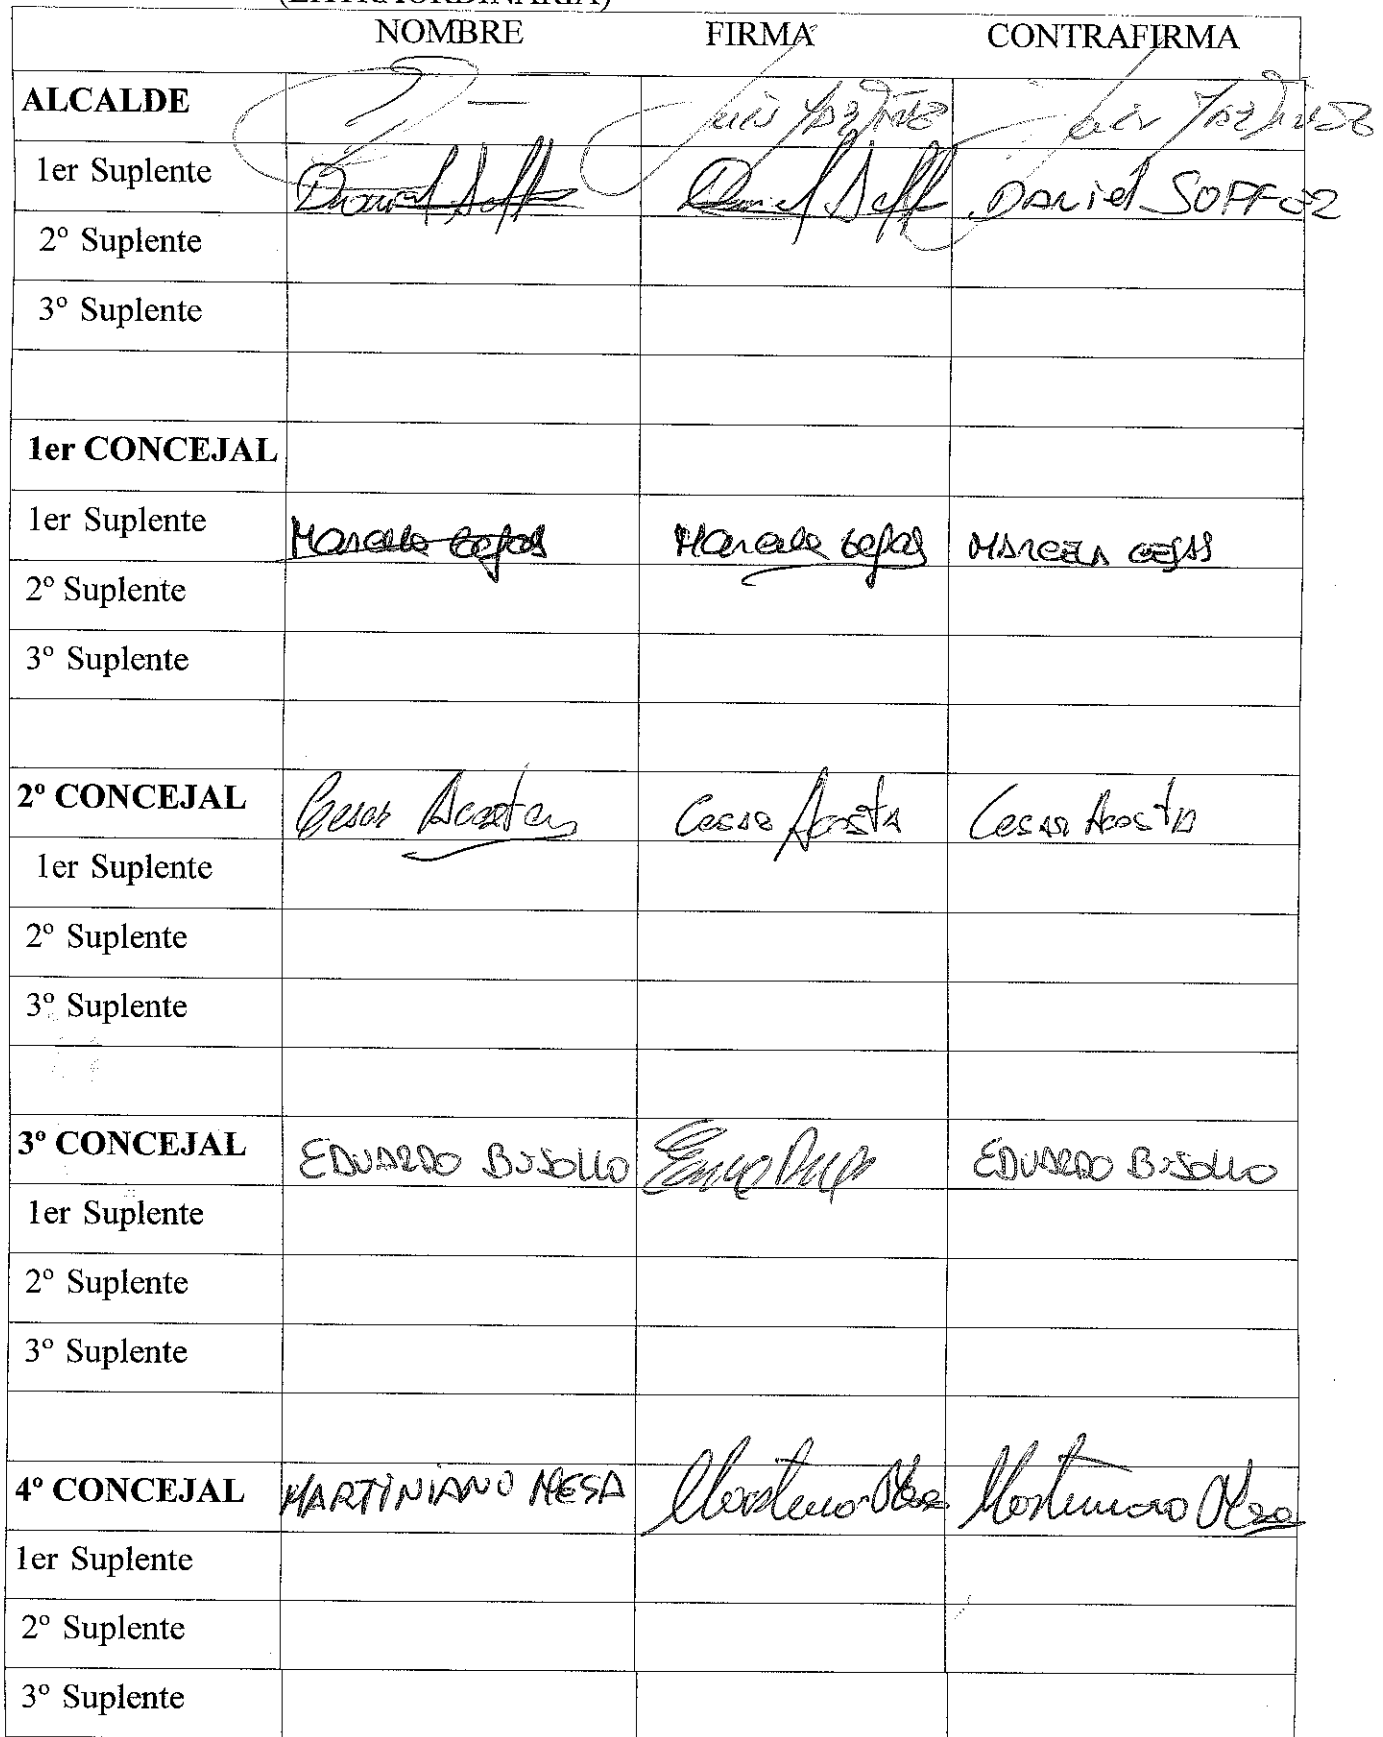 (EXTRAORDINARIA)
NOMBRE FIRMA CONTRAFIRMA
ALCALDE
1er Suplente Daniel Daniel DANiel
2º Suplente
3º Suplente
1er CONCEJAL
1er Suplente Marcela Cejas Marcela Cejas MARCELA CEJAS
2º Suplente
3º Suplente
2º CONCEJAL Cesar Acosta Cesar Acosta Cesar Acosta
1er Suplente
2º Suplente
3º Suplente
3º CONCEJAL EDUARDO EDUARDO
1er Suplente
2º Suplente
3º Suplente
4º CONCEJAL MARTINIANO MESA Martiniano Mesa Martiniano Mesa
1er Suplente
2º Suplente
3º Suplente